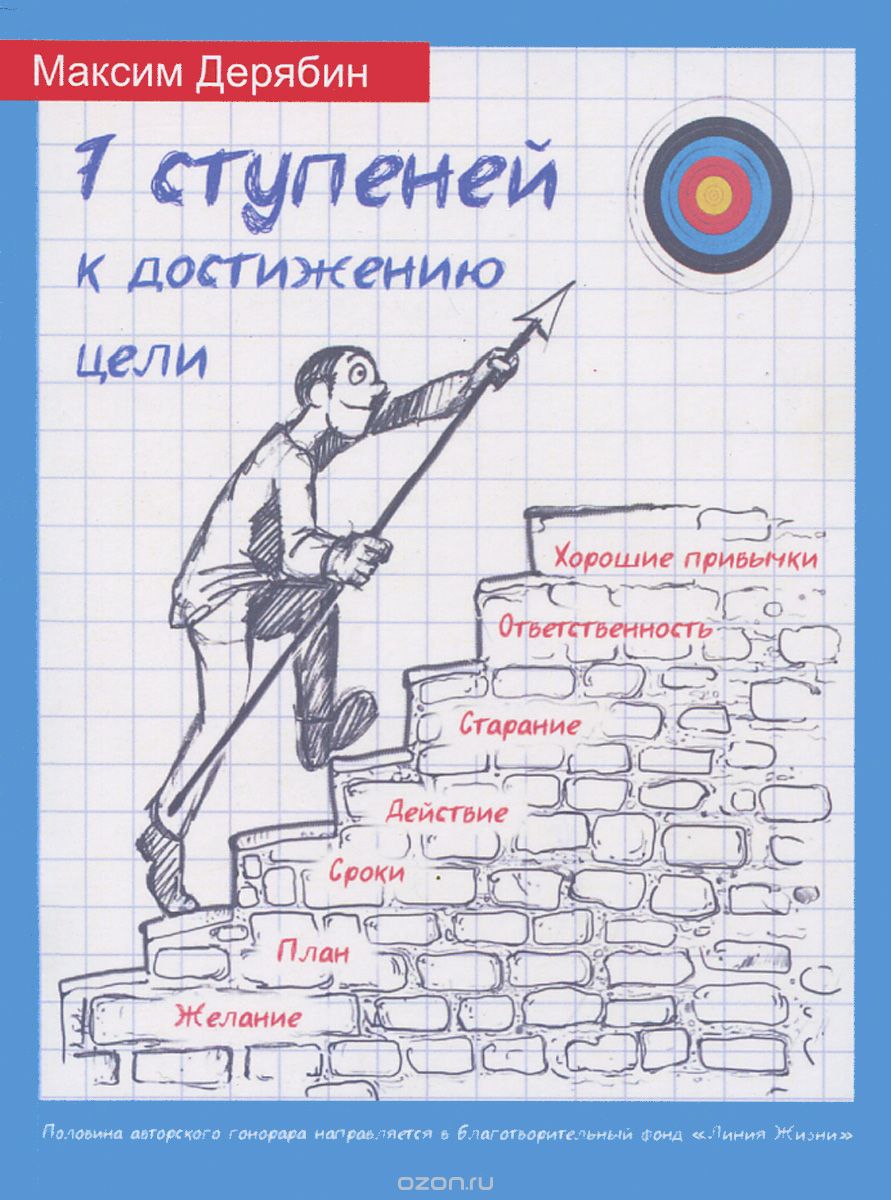 Максим Дерябин
7 ступеней
к достижению
цели
Хорошие привычки
Ответственность
Старание
Действие
Сроки
План
Желание
Половина авторского гонорара направляется в благотворительный фонд «Линия Жизни»
ozon.ru